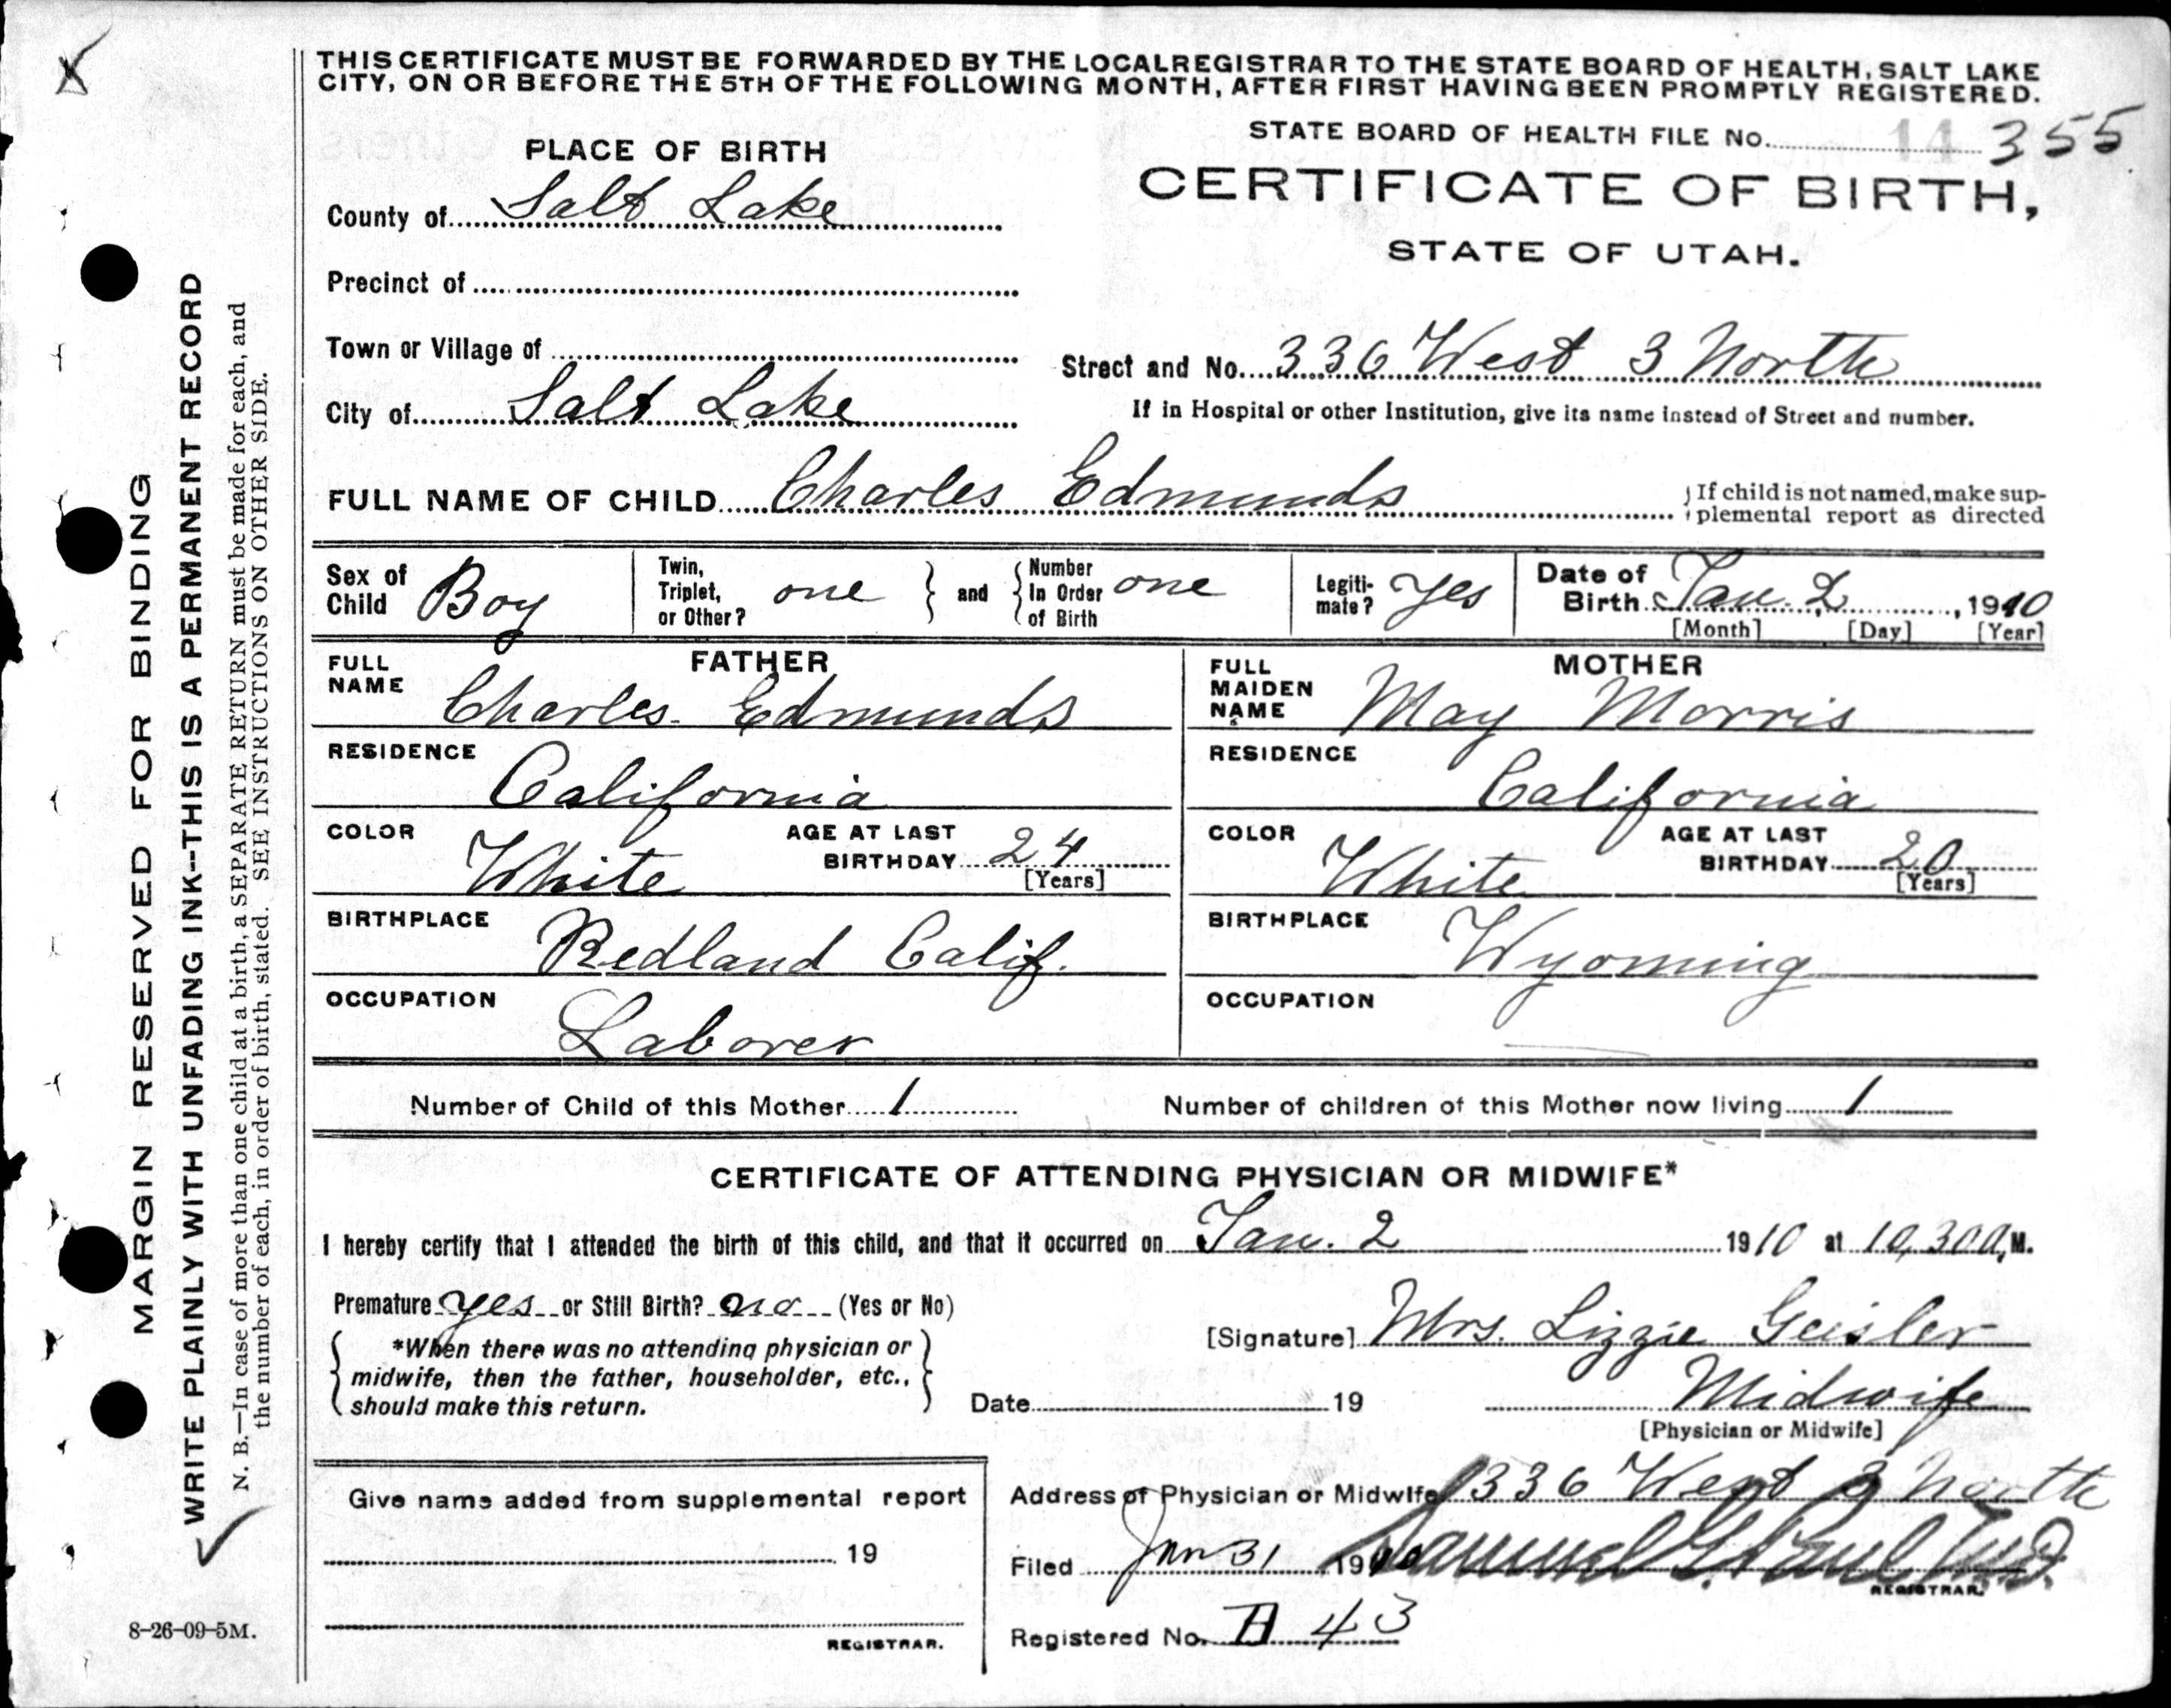 THIS CERTIFICATE MUST BE FORWARDED BY THE LOCAL REGISTRAR TO THE STATE BOARD OF HEALTH, SALT LAKE
CITY, ON OR BEFORE THE 5TH OF THE FOLLOWING MONTH, AFTER FIRST HAVING BEEN PROMPTLY REGISTERED.
STATE BOARD OF HEALTH FILE No. 355
PLACE OF BIRTH
CERTIFICATE OF BIRTH,
STATE OF UTAH.
County of Salt Lake
Precinct of
Town or Village of
Street and No. 336 West 3 North
City of Salt Lake
If in Hospital or other Institution, give its name instead of Street and number.
FULL NAME OF CHILD Charles Edmunds
If child is not named, make sup-
plemental report as directed
Sex of Child Boy
Twin, Triplet, or Other? one
and
Number In Order of Birth one
Legiti-mate? Yes
Date of Birth Jan. 2, 1910
[Month] [Day] [Year]
FATHER
FULL NAME Charles Edmunds
RESIDENCE California
COLOR White AGE AT LAST BIRTHDAY 24 [Years]
BIRTHPLACE Redland Calif.
OCCUPATION Laborer
MOTHER
FULL MAIDEN NAME May Morris
RESIDENCE California
COLOR White AGE AT LAST BIRTHDAY 20 [Years]
BIRTHPLACE Wyoming
OCCUPATION
Number of Child of this Mother 1
Number of children of this Mother now living 1
CERTIFICATE OF ATTENDING PHYSICIAN OR MIDWIFE*
I hereby certify that I attended the birth of this child, and that it occurred on Jan. 2 1910 at 10,30 a, M.
Premature yes or Still Birth? no (Yes or No)
*When there was no attending physician or
midwife, then the father, householder, etc.,
should make this return.
[Signature] Mrs. Lizzie Geisler
Date 19
Midwife
[Physician or Midwife]
Give name added from supplemental report
19
REGISTRAR.
Address of Physician or Midwife 336 West 3 North
Filed Jan 31 1910 Samuel G. Paul M.D.
REGISTRAR.
Registered No. 43
MARGIN RESERVED FOR BINDING
WRITE PLAINLY WITH UNFADING INK--THIS IS A PERMANENT RECORD
N. B.—In case of more than one child at a birth, a SEPARATE RETURN must be made for each, and
the number of each, in order of birth, stated. SEE INSTRUCTIONS ON OTHER SIDE.
8-26-09-5M.